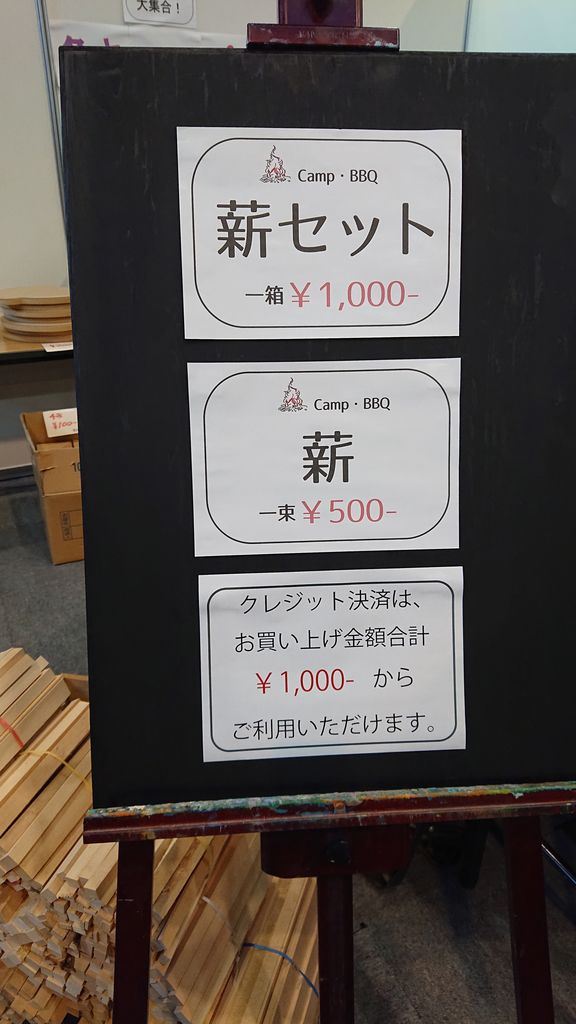 大集合！
Camp・BBQ
薪セット
一箱 ￥1,000-
Camp・BBQ
薪
一束 ￥500-
クレジット決済は、
お買い上げ金額合計
￥1,000- から
ご利用いただけます。
¥100-